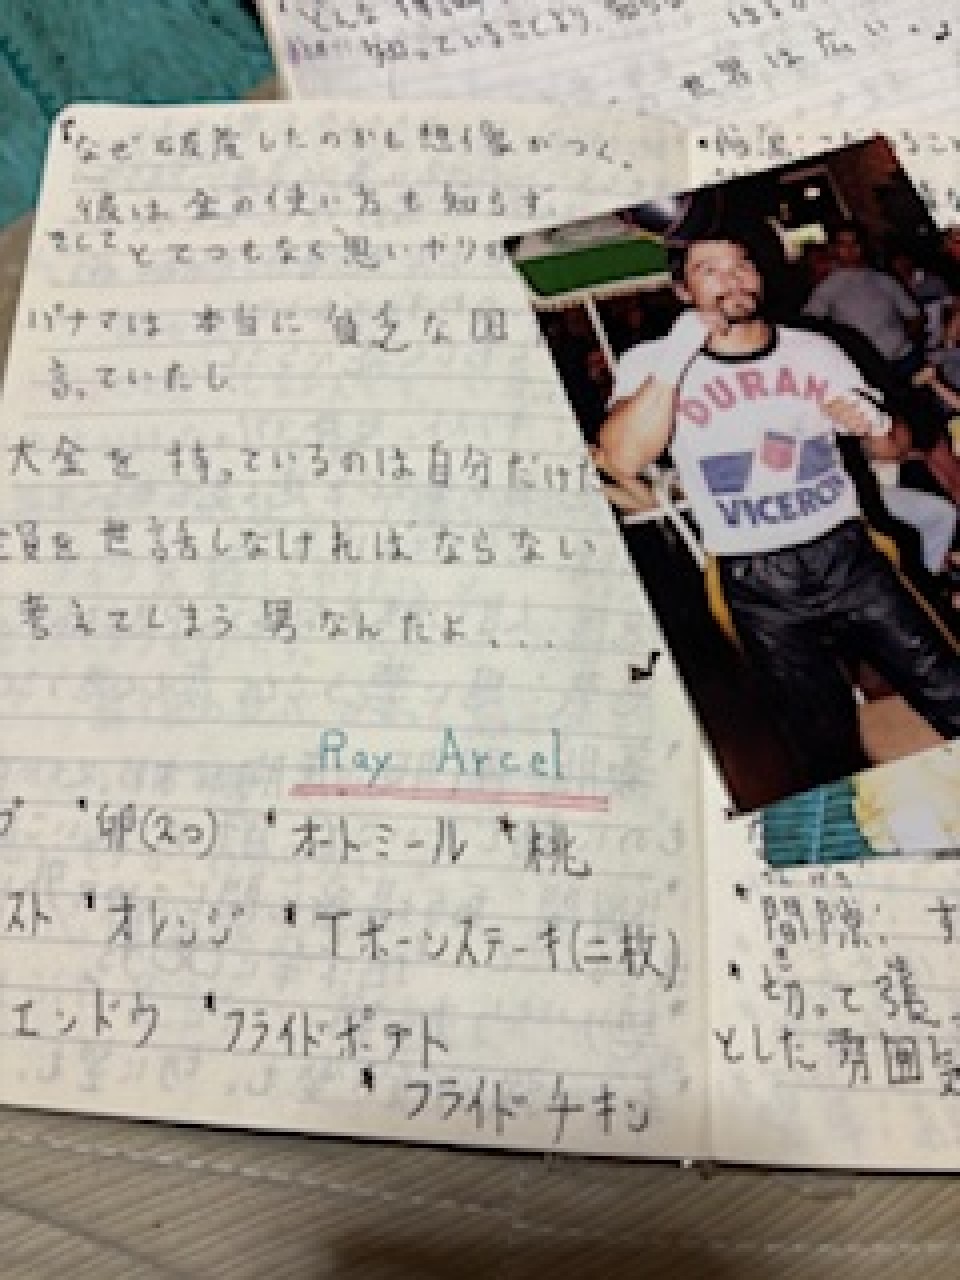 世界は広い。
なぜ破産したのかも想像がつく。
彼は金の使い方も知らず、
そしてとてつもなく思いやりの
パナマは本当に貧乏な国
言っていたし
大金を持っているのは自分だけだ
員を世話しなければならない
考えてしまう男なんだよ...」
Ray Arcel
・卵(2コ) ・オートミール ・桃
スト ・オレンジ ・Tボーンステーキ(二枚)
エンドウ ・フライドポテト
・フライドチキン
DURAN
VICEROY
・間隙: す
・切って張っ
とした雰囲気